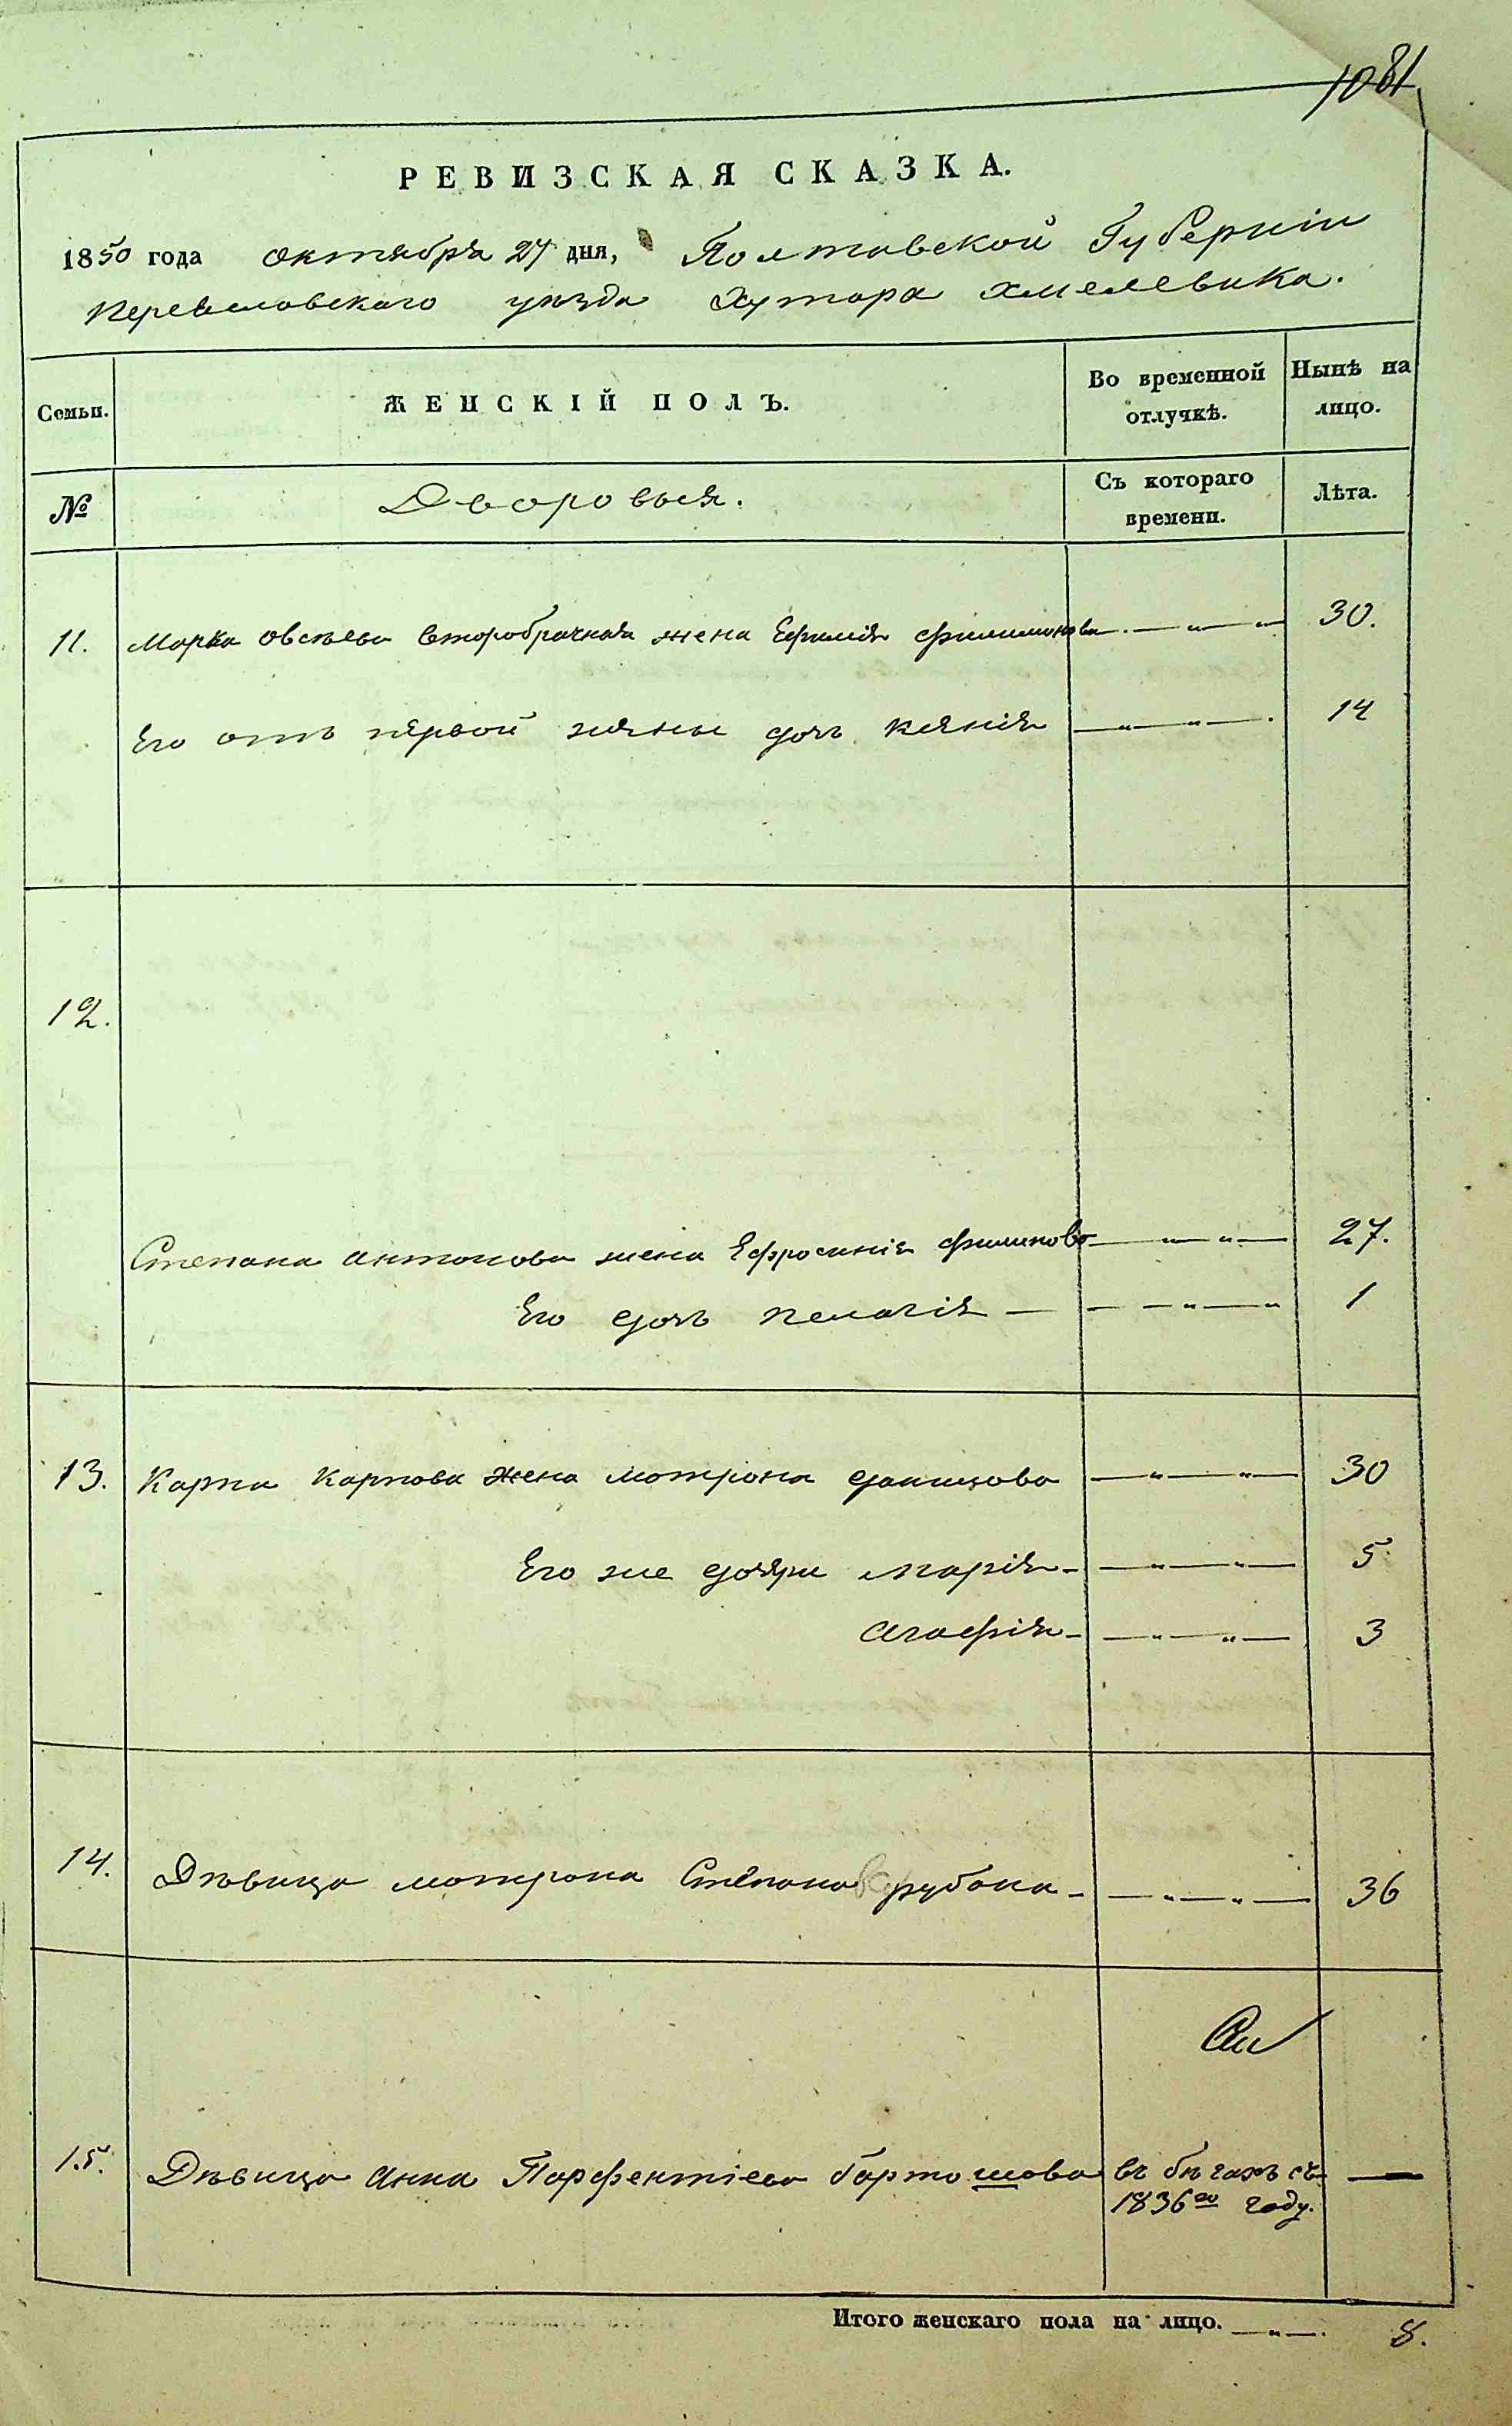 1081
РЕВИЗСКАЯ СКАЗКА.
1850 года октября 27 дня, Полтавской Губерніи
Переяславскаго уезда Хутора Хмелевика.
Семьи.
ЖЕНСКІЙ ПОЛЪ.
Во временной отлучкѣ.
Нынѣ на лицо.
№
Дворовыя.
Съ котораго времени.
Лѣта.
11. Марка Овсѣева второбрачная жена Ефимія Филимонова. — „ — „ 30.
Его отъ первой жены дочь Ксенія — „ — „ — . 14
12.
Степана Антонова жена Ефросинія Филипова — „ — „ — 27.
Его дочь Пелагія — — — „ — „ 1
13. Карпа Карпова жена Мотрона — „ — „ — 30
Его же дочери Марія - — „ — „ — 5
Агафія - — „ — „ — 3
14. Дѣвица Мотрона Степанова рубана - — „ — „ — 36
15. Дѣвица Анна Парфентіева Гартошова въ бѣгахъ съ —
1836го году.
Итого женскаго пола на лицо. — „ — . 8.